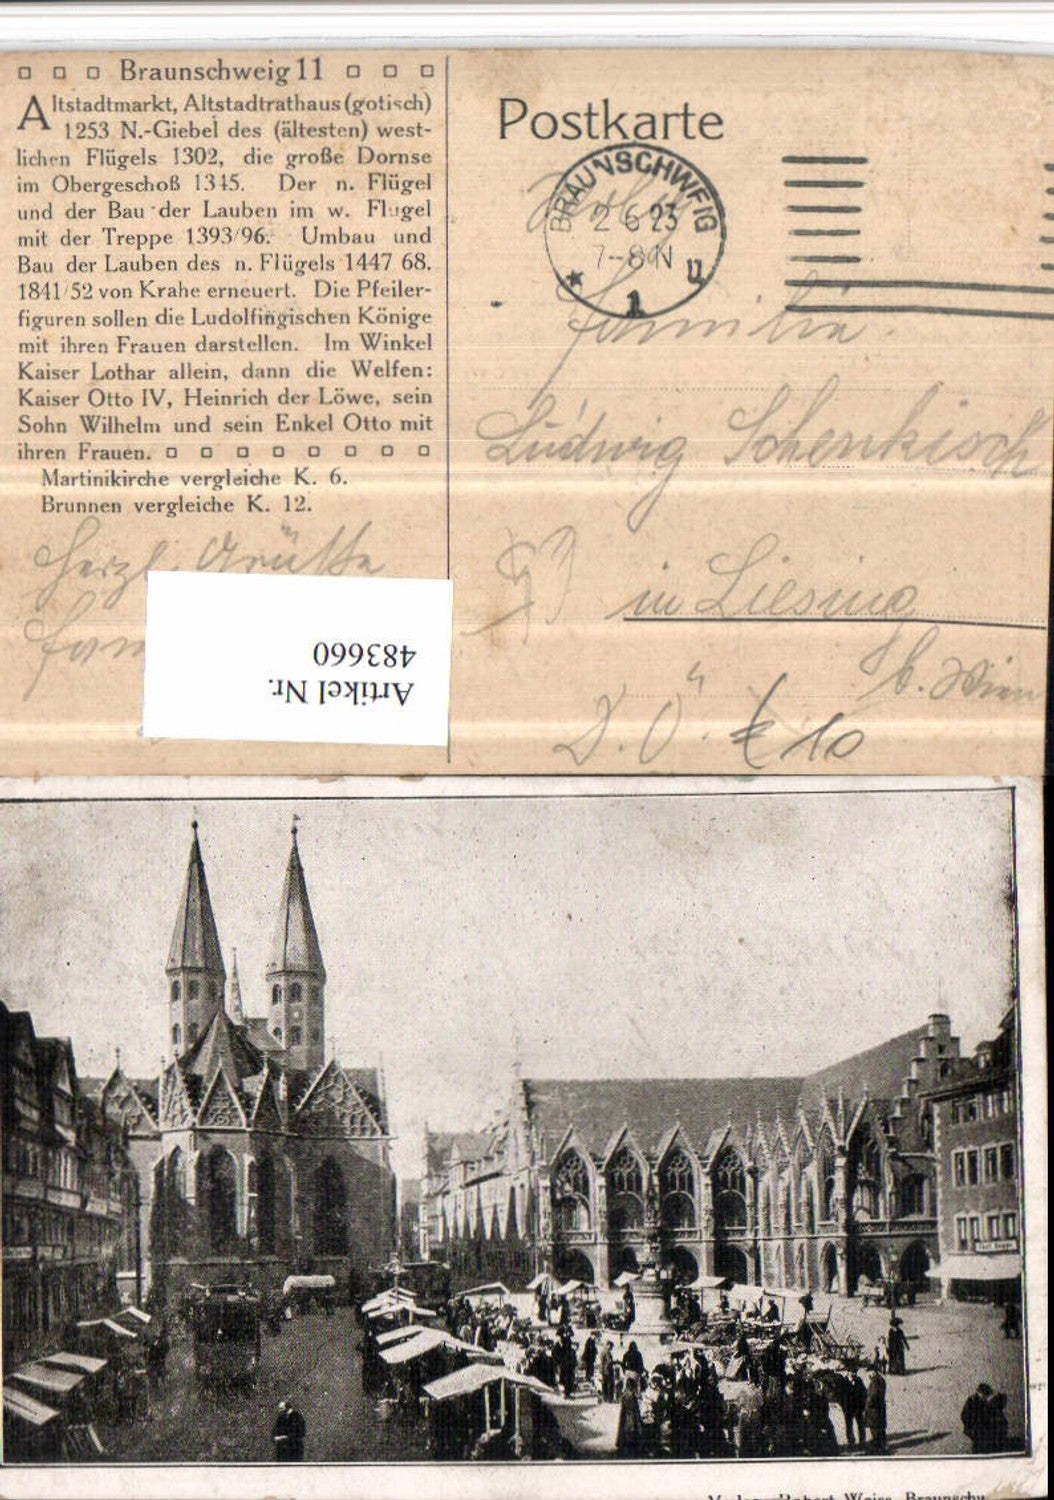 Braunschweig 11
Altstadtmarkt, Altstadtrathaus (gotisch)
1253 N.-Giebel des (ältesten) west-
lichen Flügels 1302, die große Dornse
im Obergeschoß 1345. Der n. Flügel
und der Bau der Lauben im w. Flugel
mit der Treppe 1393/96. Umbau und
Bau der Lauben des n. Flügels 1447 68.
1841/52 von Krahe erneuert. Die Pfeiler-
figuren sollen die Ludolfingischen Könige
mit ihren Frauen darstellen. Im Winkel
Kaiser Lothar allein, dann die Welfen:
Kaiser Otto IV, Heinrich der Löwe, sein
Sohn Wilhelm und sein Enkel Otto mit
ihren Frauen.
Martinikirche vergleiche K. 6.
Brunnen vergleiche K. 12.
Herzl. Grüsse
Fam
Artikel Nr.
483660
Postkarte
BRAUNSCHWEIG
2 6 23
7-8 N
* 1 u
Familie
Ludwig Schenkisch
in Liesing
b. Wien
D. Ö. 10
Verlag: Robert Weise, Braunschw